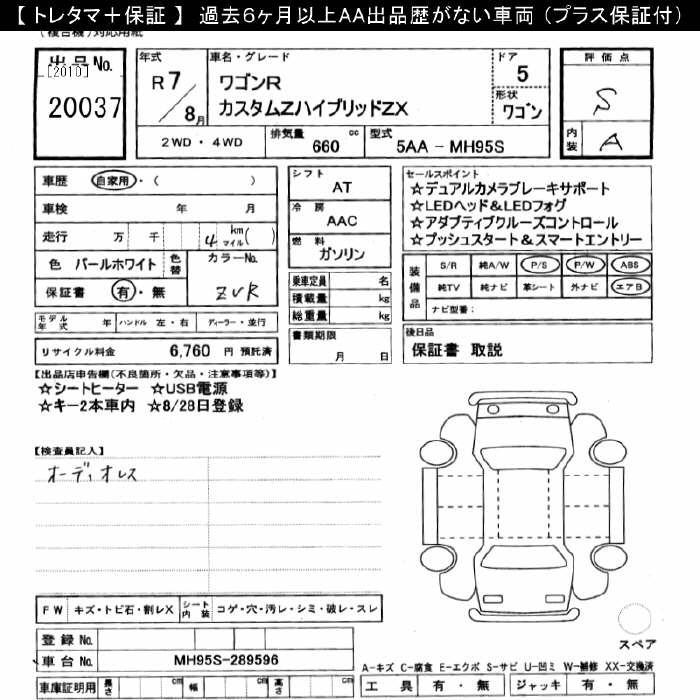 【 トレタマ＋保証 】 過去６ヶ月以上AA出品歴がない車両 （プラス保証付）
(複合機)対応用紙
出品No.
[2010]
20037
年式
R7/8月
車名・グレード
ワゴンR
カスタムZハイブリッドZX
ドア
5
形状
ワゴン
評価点
S
内装
A
2WD ・ 4WD
排気量 660 cc
型式 5AA - MH95S
車歴 自家用・( )
車検 年 月
走行 万 千 4 km マイル( )
色 パールホワイト 色替
カラーNo.
ZVR
保証書 有・無
モデル年式 年 ハンドル 左・右 ディーラー・並行
リサイクル料金 6,760 円 預託済
シフト
AT
冷房
AAC
燃料
ガソリン
乗車定員 名
積載量 kg
総重量 kg
書類期限
月 日
セールスポイント
☆デュアルカメラブレーキサポート
☆LEDヘッド&LEDフォグ
☆アダプティブクルーズコントロール
☆プッシュスタート＆スマートエントリー
装備品
S/R 純A/W P/S P/W ABS
純TV 純ナビ 革シート 外ナビ エアB
ナビ型番：
後日品
保証書 取説
【出品店申告欄(不良箇所・欠品・注意事項等)】
☆シートヒーター ☆USB電源
☆キー2本車内 ☆8/28日登録
【検査員記入】
オーディオレス
FW キズ・トビ石・割レX シート内装 コゲ・穴・汚レ・シミ・破レ・スレ
登録No.
車台No. MH95S-289596
車庫証明用 長さ cm 幅 cm 高さ cm
スペア
A-キズ C-腐食 E-エクボ S-サビ U-凹ミ W-補修 XX-交換済
工具 有・無 ジャッキ 有・無